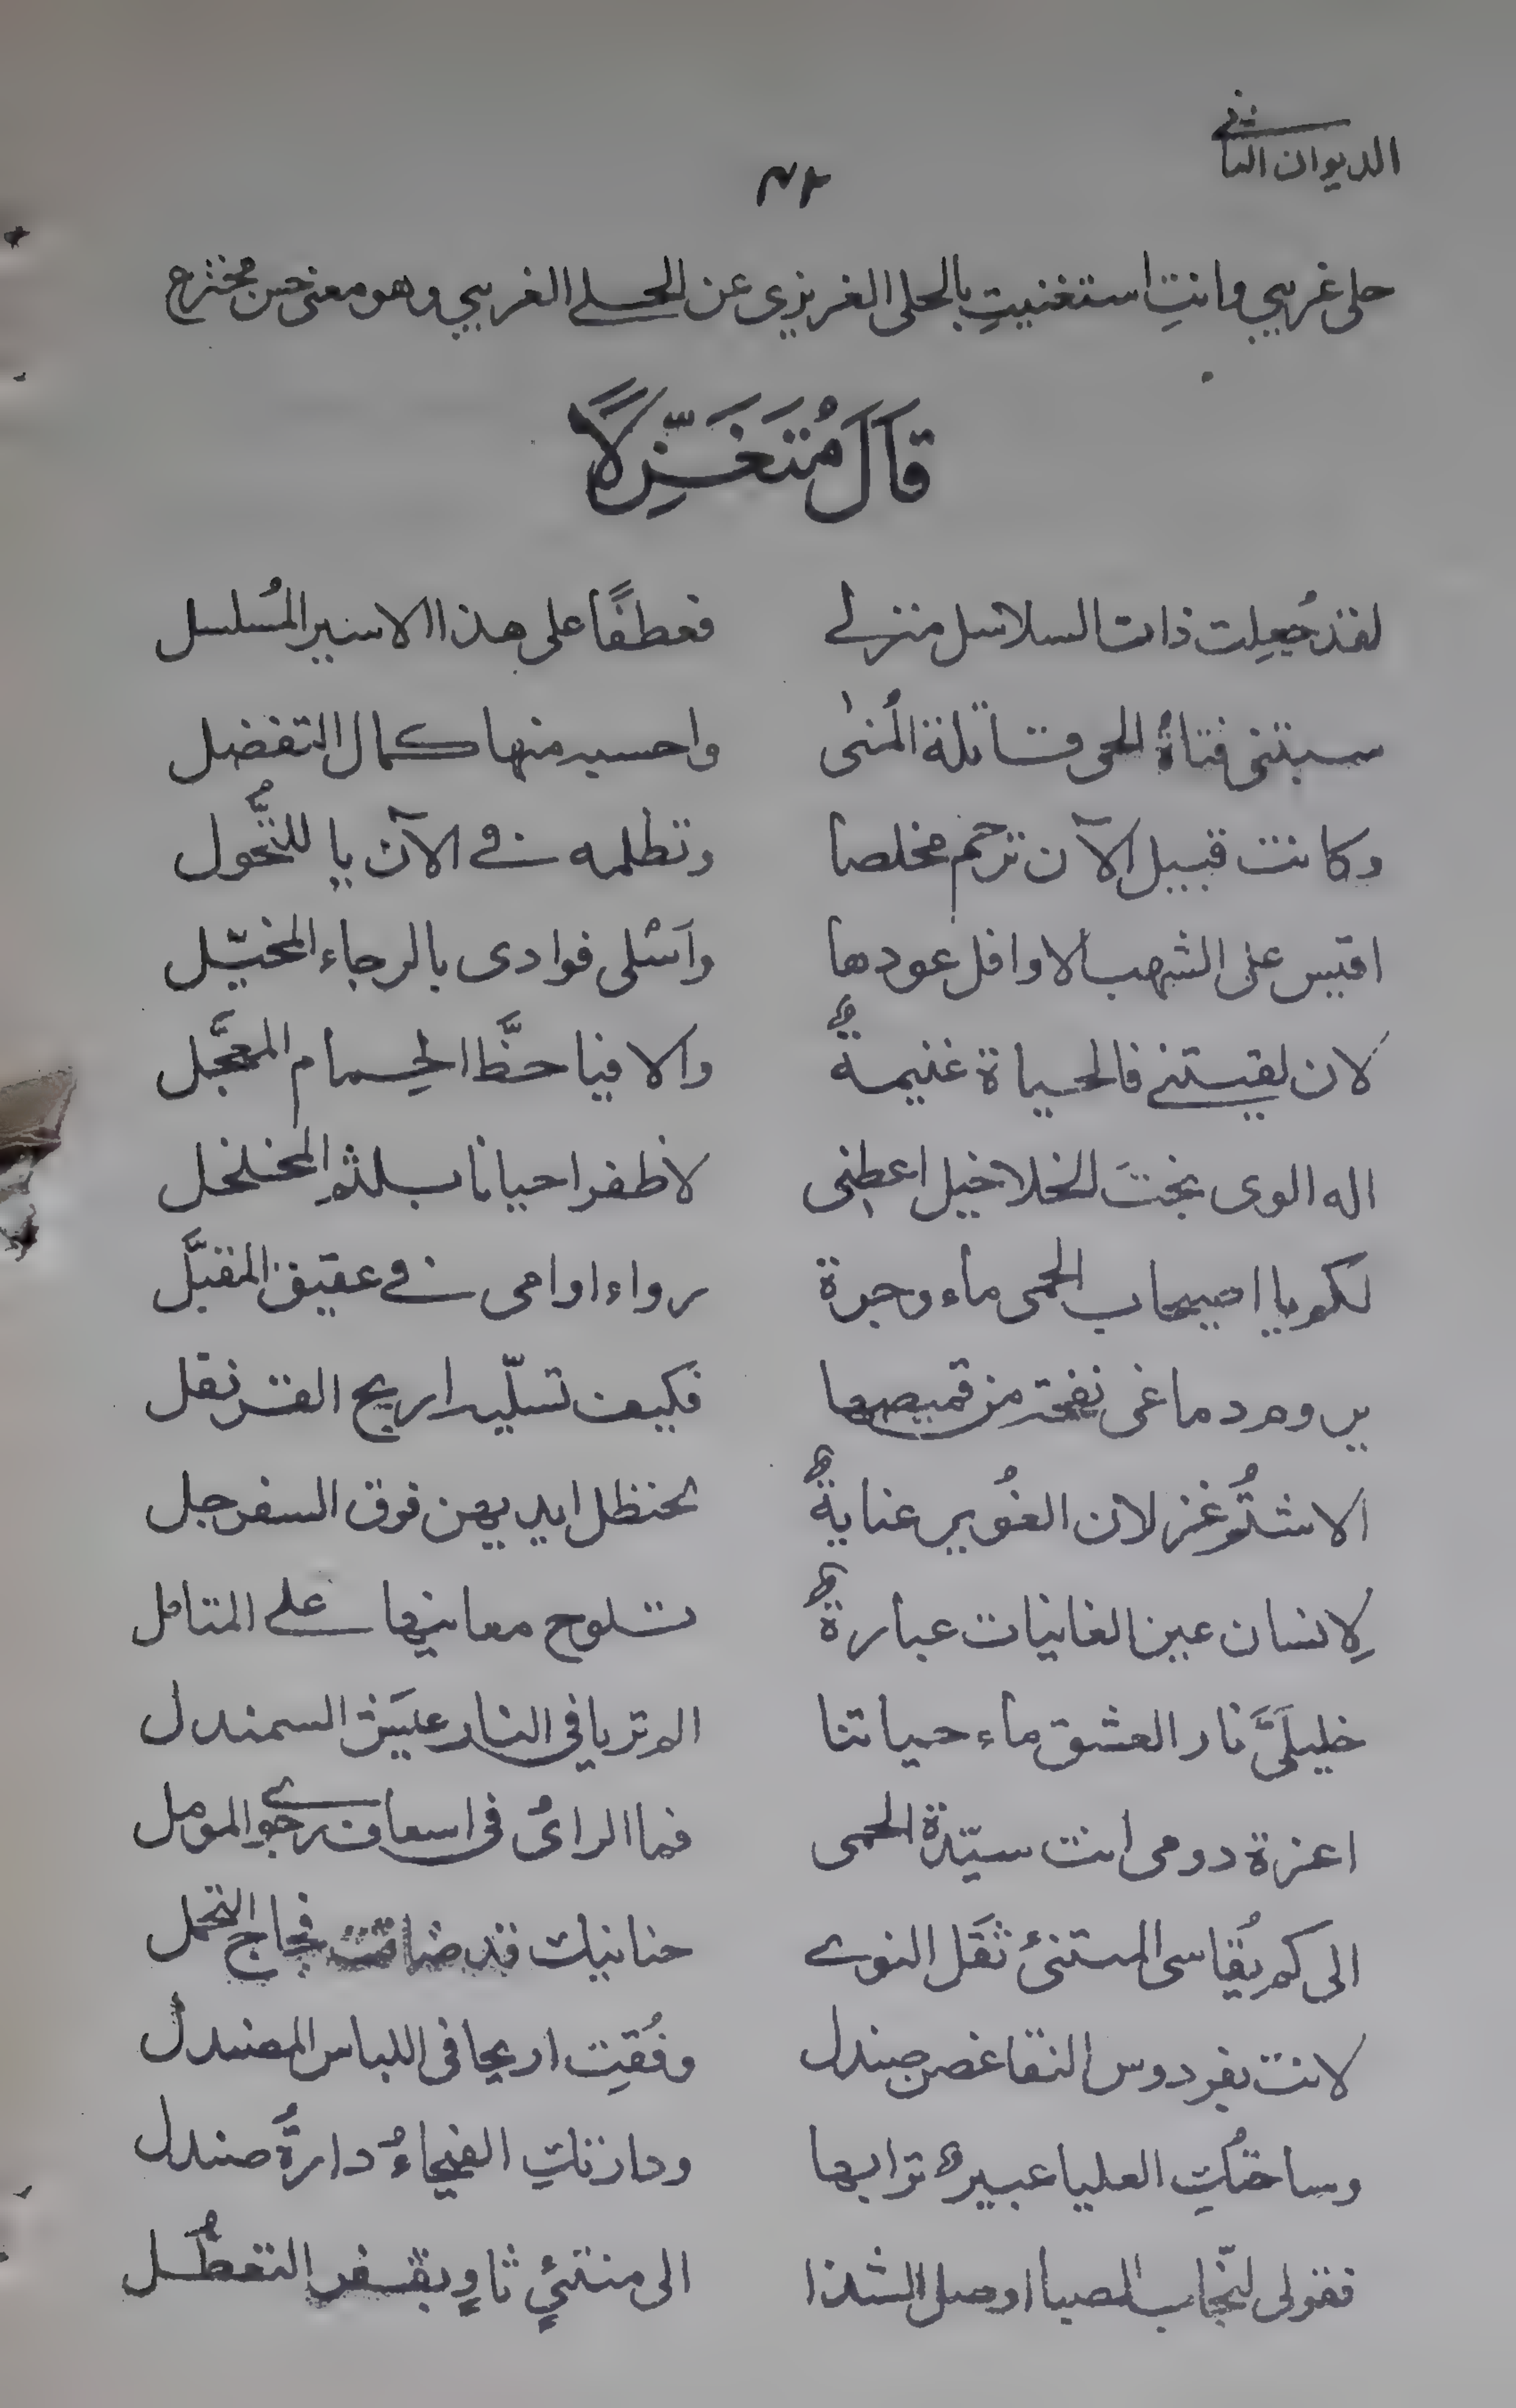 الديوان الثانى
حلى غريبي وانتِ استغنيتِ بالحلى الغريزى عن الحلى الغريبي وهو معنى حسن مخترع
قَالَ مُتَغَزِّلًا
لقد جُعِلت ذات السلاسل منزلى فعطفًا على هذا الاسير المُسلسل
سبتنى فتاة الحى قاتلة المُنىٰ واحسد منها كمال التفضل
وكانت قبيل الآن ترحم مخلصا وتظلمه فى الآن يا للتَّحُول
اقيس على الشهب الاوافل عودها واَسْلى فوادى بالرجاء المخيّل
لان لقيتنى فالحياة غنيمةٌ والا فيا حظَّ الحِمام المعجَّل
اله الورى بختَ الخلاخيل اعطِنى لاظفر احيانا بلثم المخلخل
لكم يا اصيحاب الحمى ماء وجرة رواء اوامى فى عقيق المقبَّل
يروم دماغى نفحة من قميصها فكيف تسلّيه اريج القرنفل
الا شمُّ غزلان الغُوير عنايةٌ لحنظل ايديهن فوق السفرجل
لِانسان عين الغانيات عبارةٌ تلوح معانيها على المتامل
خليلَىَّ نار العشق ماء حياتنا الم تريا فى النار عيَش السمندل
اعزة دومى انت سيّدة الحمى فما الراىُ فى اسعاف رجو المومل
الى كم يُقاسى المستنئ ثقَل النوى حنانيك قد ضاقت فجاج التحمل
لانت بفردوس النقا غصن صندل وفُقتِ اريجا فى اللباس المصندل
وساحتُكِ العليا عبيرٌ ترابها وحازتكِ الفيحاءُ دارةُ صندل
فقولى لنجّاب الصبا اوصل الشذا الى منتئٍ ثاوٍ بقفر التعطُّل